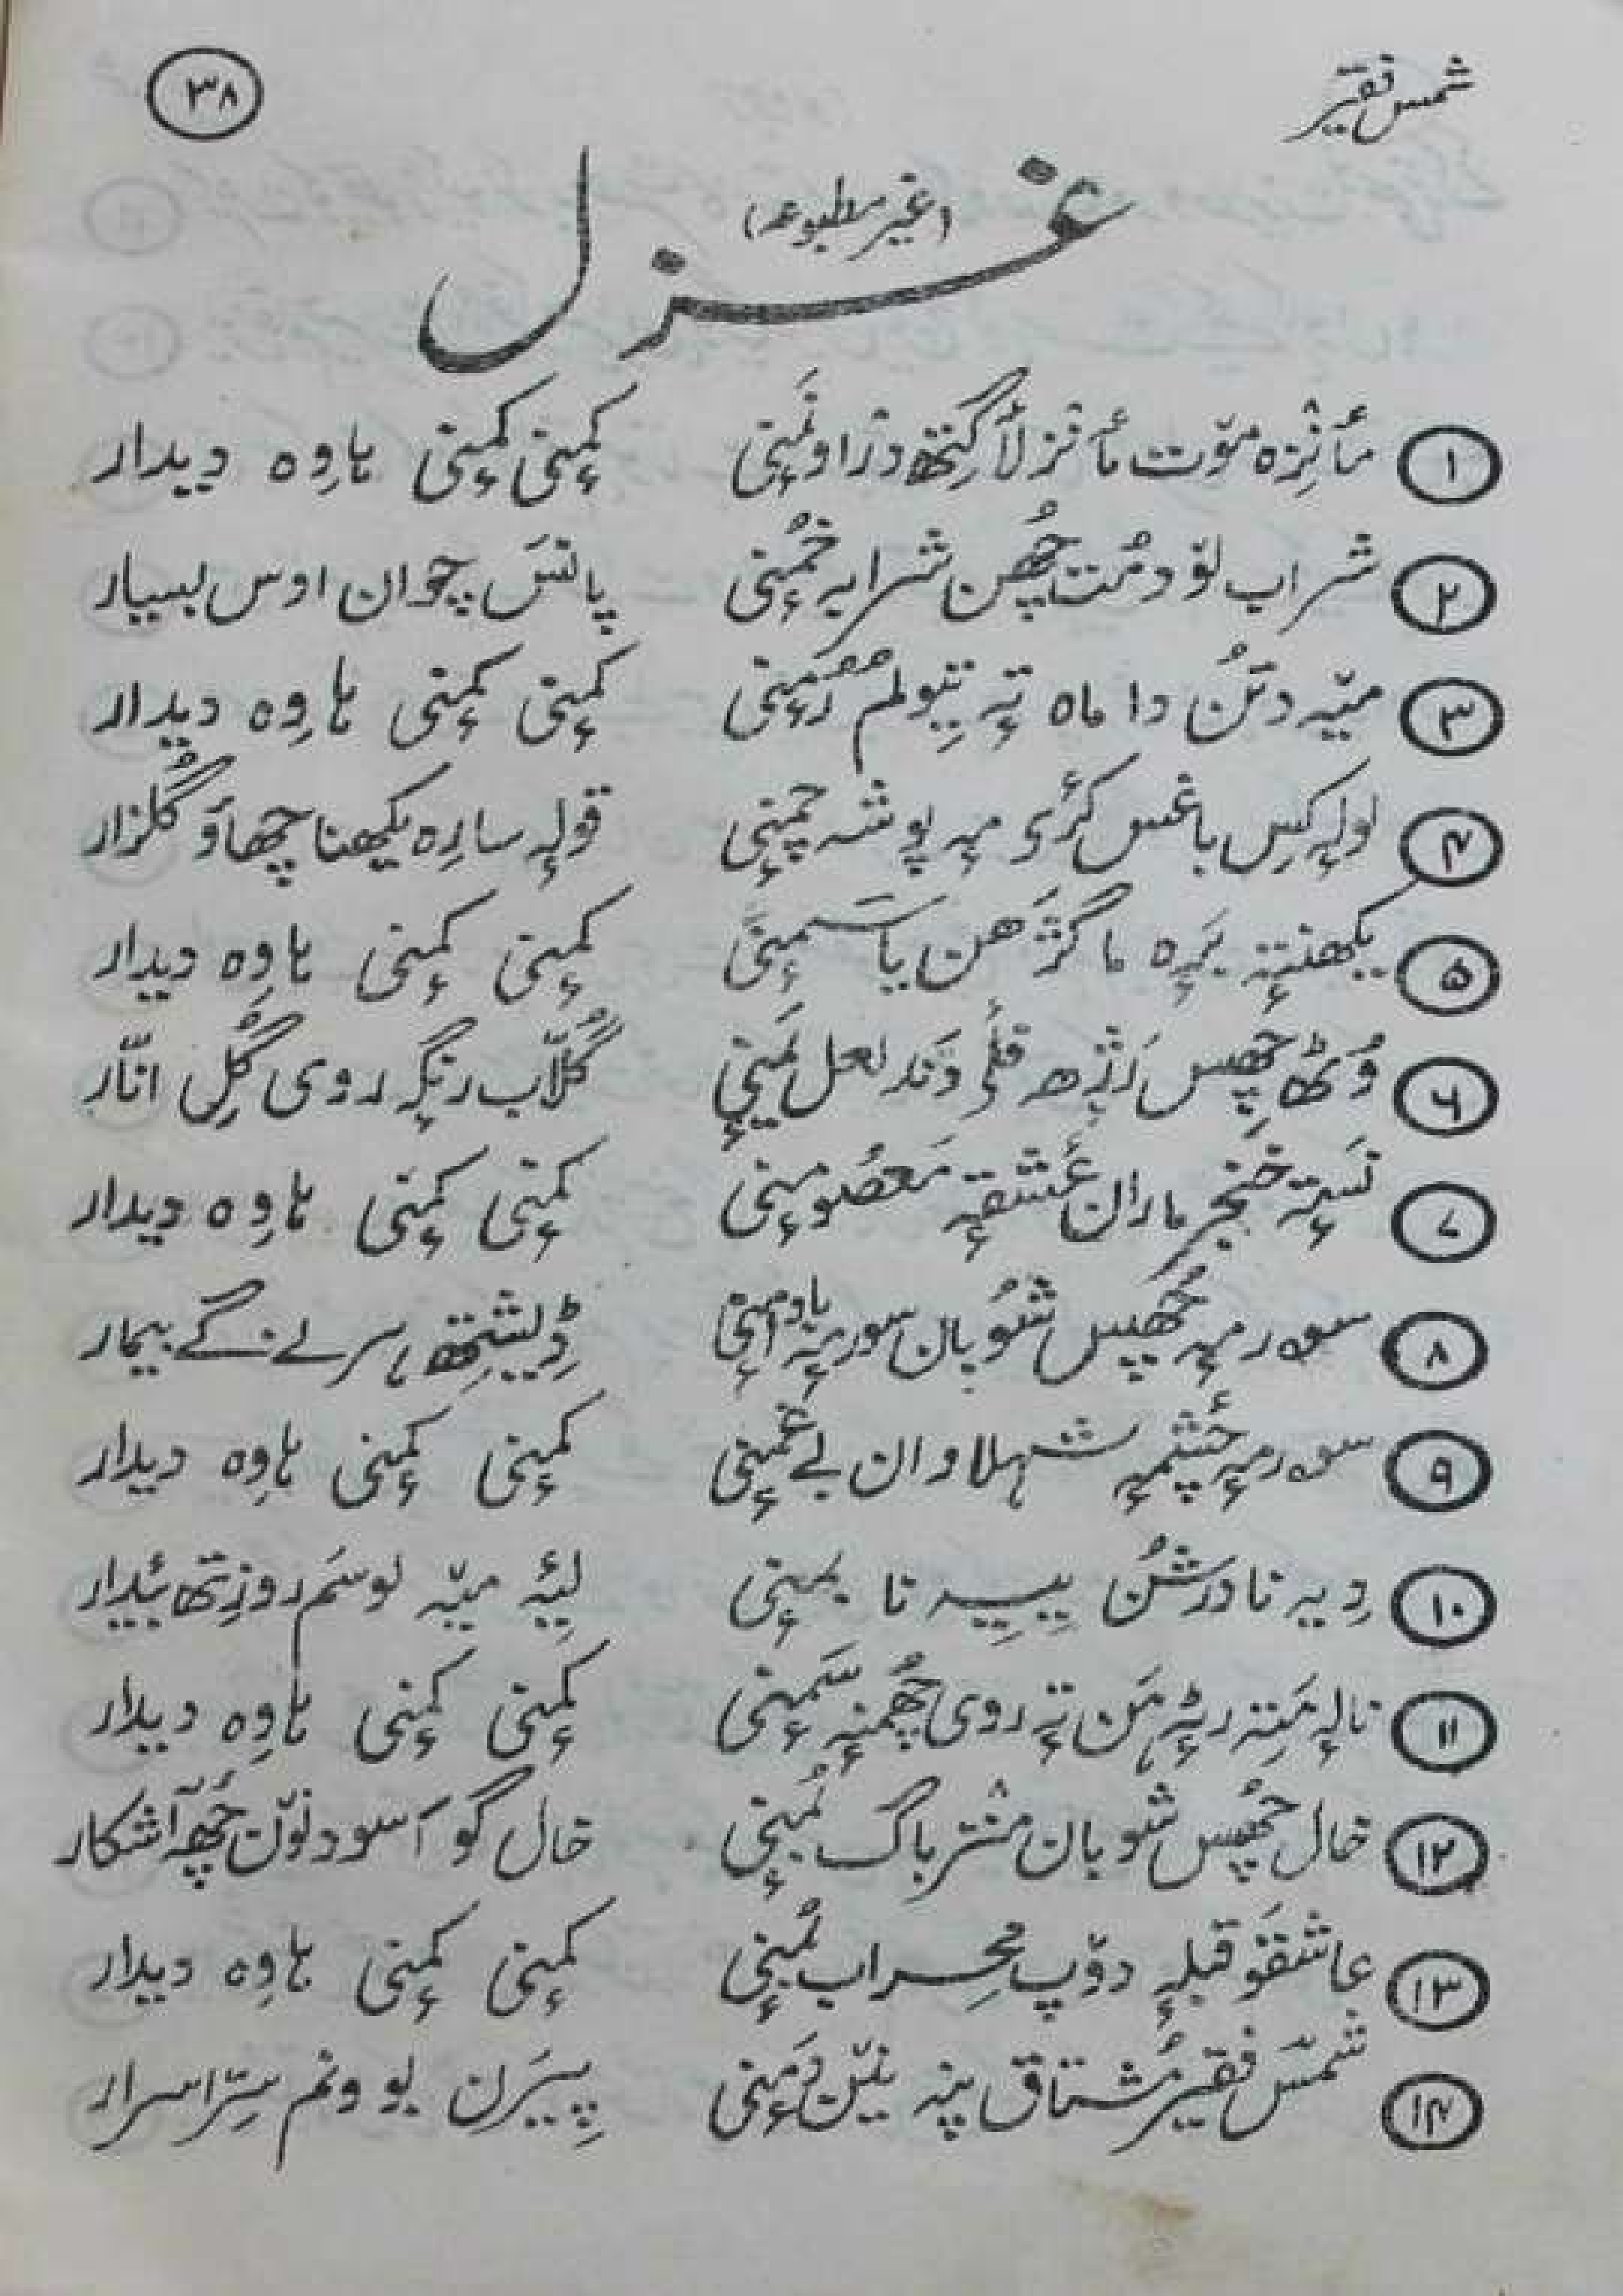 شمس فقیر
۳۸
غزل
(غیر مطبوعہ)
۱ مأنٛزہ موٚت مأنٛز لأگِتھ دٔراو نَمٕنی کمٕنی کمٕنی ہاوِہ دیدار
۲ شراب لوٚدمُت چھُن شرابہ خُمٕنی پانَس چوان اوس بسیار
۳ میٚہ دِتُن داماہ تہٕ نِیولم رُمٕنی کمٕنی کمٕنی ہاوِہ دیدار
۴ لولہٕ کِس باغس کٔرٕ مہٕ پوشہ چمٕنی قولہٕ سارِہ یکھنا چھاوَ گُلزار
۵ یکھنتہٕ یَرٕہ ماگژھن یاسَمٕنی کمٕنی کمٕنی ہاوِہ دیدار
۶ وُٹھ چھِس قند لعل یَمٕنی گُلاّب رنگہٕ روی گُلِ انّار
۷ نَستہٕ خنجر ماران عٔشقہٕ مَعصُومٕنی کمٕنی کمٕنی ہاوِہ دیدار
۸ سورمہٕ چھُس شوٗبان سوریہٕ ڈیشِتھ سرلے نے گے بیمار
۹ سورمہٕ چٔشمہٕ شہلاوان بے غَمٕنی کمٕنی کمٕنی ہاوِہ دیدار
۱۰ دِیہ نا دَرشُن یِیہِ نا یمٕنی لیٔہ میٚہ لوسَم روزِتھ بیٔدار
۱۱ نالہٕ مَتہ رٹہٕ ہَن تہٕ روی چھُمنہٕ سَمٕنی کمٕنی کمٕنی ہاوِہ دیدار
۱۲ خال چھُس شوبان منٛز باگ بُمٕنی خال گو آسود نوٚن چھُہ آشکار
۱۳ عاشقَو قبلہٕ دوٚپ محراب بُمٕنی کمٕنی کمٕنی ہاوِہ دیدار
۱۴ شمس فقیر مُشتاق پنہٕ نیٚن دَمٕنی پِیرَن بوونم سِرّ اسرار